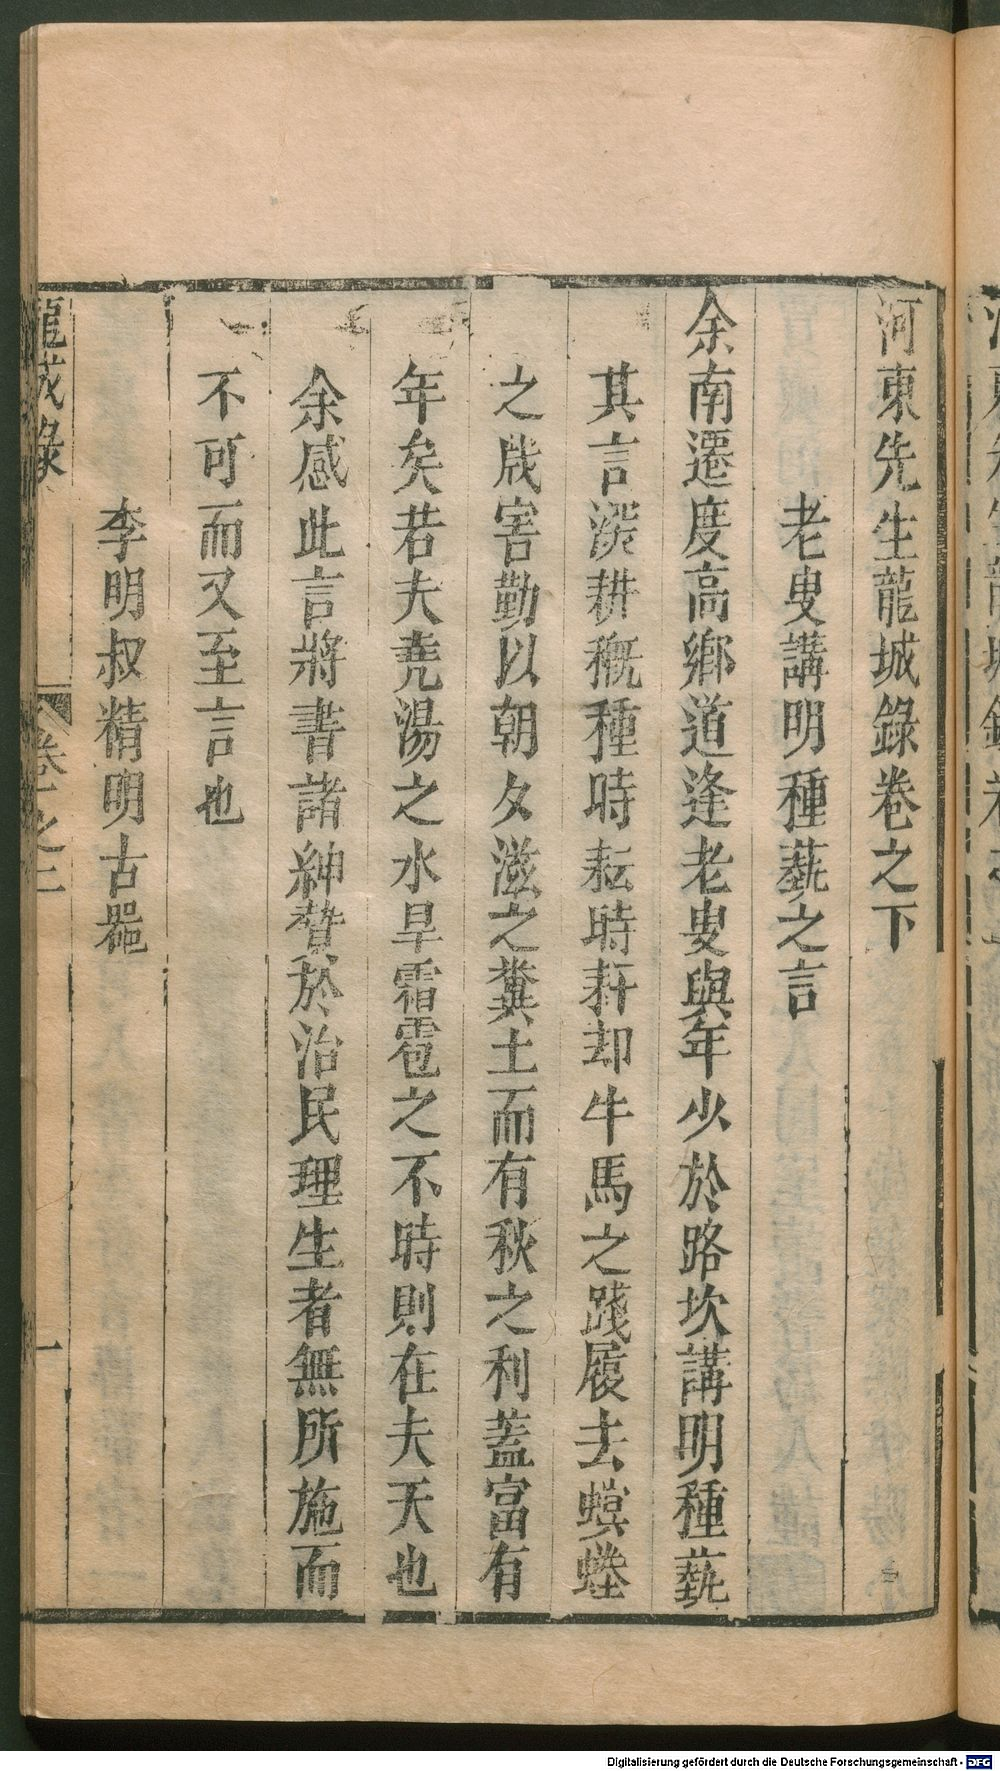 河東先生龍城錄卷之下
老叟講明種蓺之言
余南遷度高鄉道逢老叟與年少於路坎講明種蓺
其言深耕穊種時耘時耔却牛馬之踐履去螟螣
之戕害勤以朝夕滋之糞土而有秋之利蓋富有
年矣若夫堯湯之水旱霜雹之不時則在夫天也
余感此言將書諸紳贊於治民理生者無所施而
不可而又至言也
李明叔精明古器
龍城錄
卷之二
一
Digitalisierung gefördert durch die Deutsche Forschungsgemeinschaft - DFG